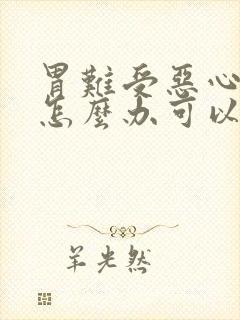 胃難受惡心
怎麼办可以
羊光然